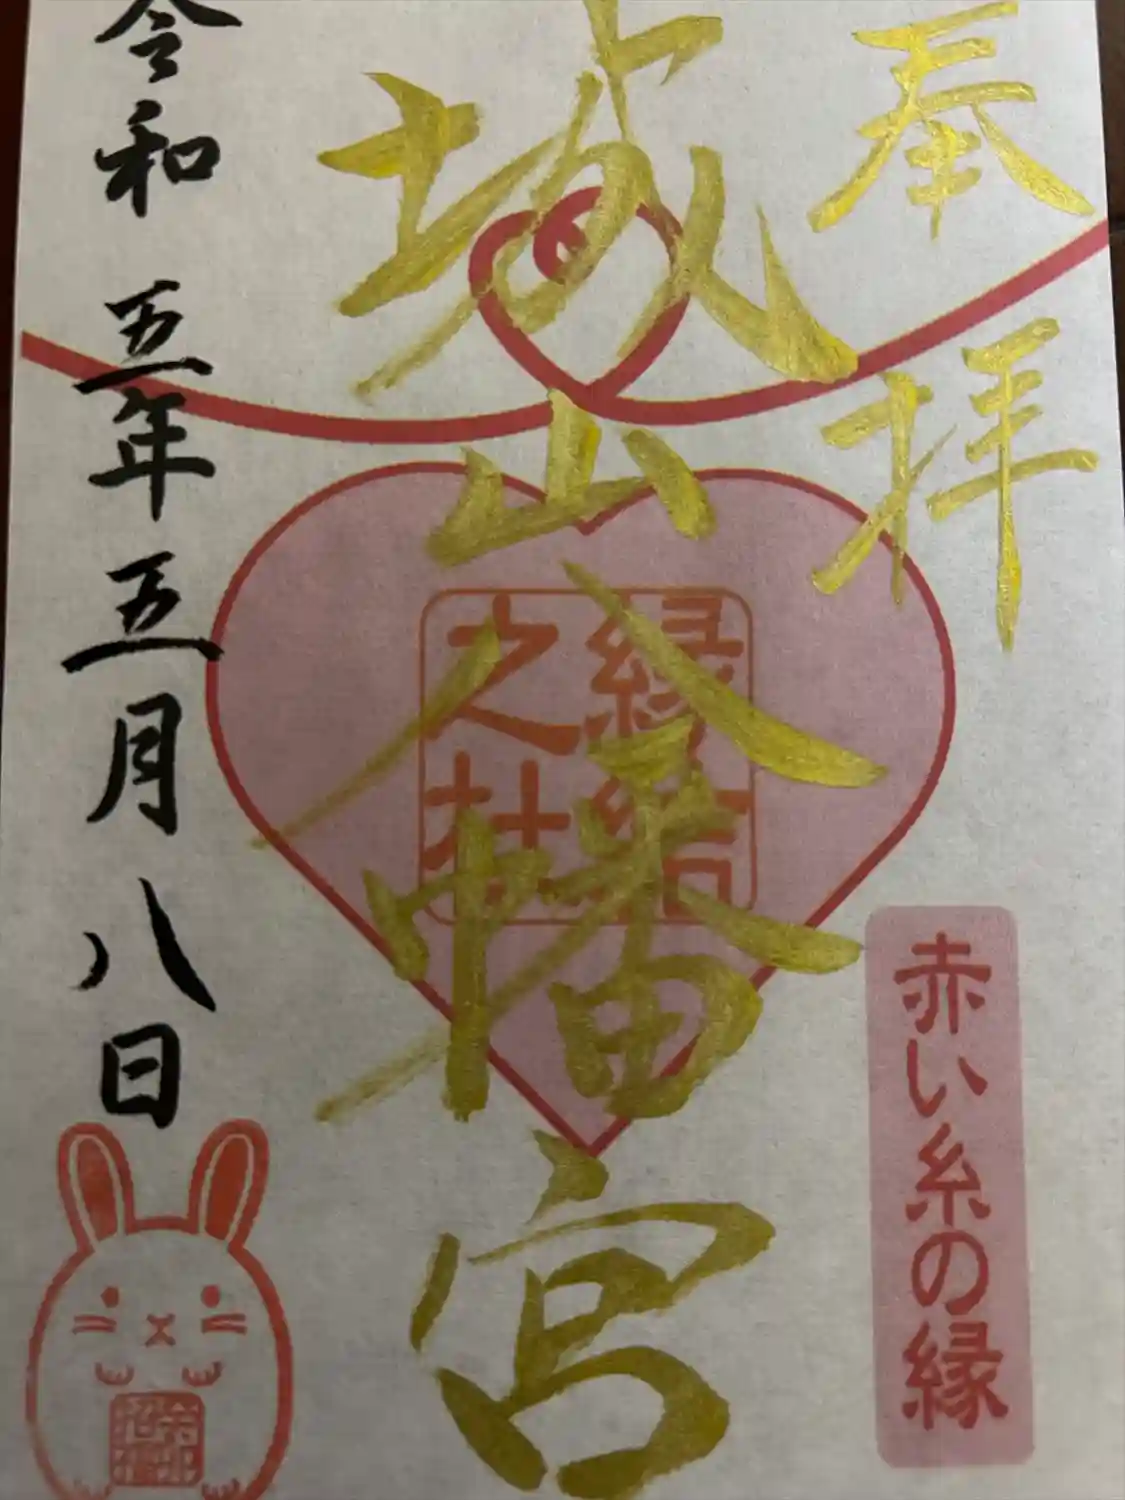 奉拝
赤い糸の縁
城山八幡宮
縁結
之社
令和五年五月八日